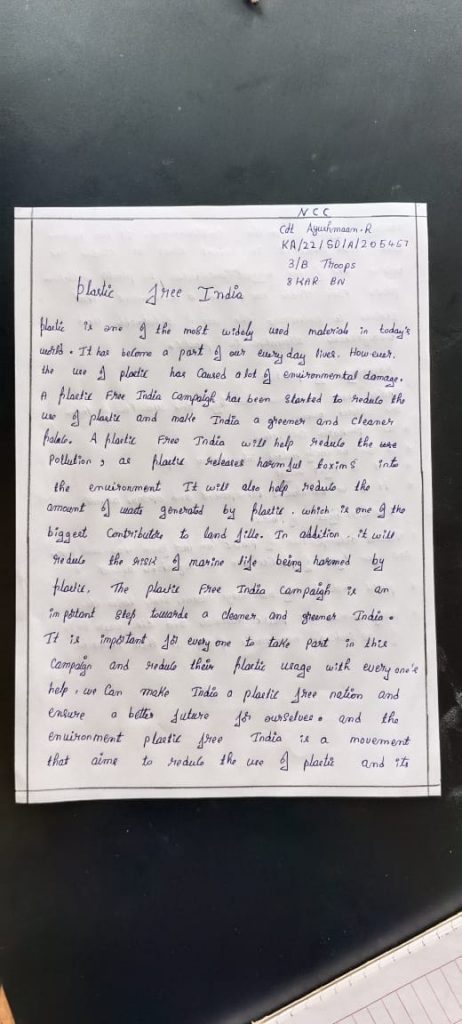 NCC
Cdt Ayushmaan.R
KA/22/SD/A/205457
3/B Troops
8 KAR BN
plastic free India
plastic is one of the most widely used materials in today's
world. It has become a part of our every day lives. However,
the use of plastic has caused a lot of environmental damage.
A plastic Free India Campaigh has been started to reduce the
use of plastic and make India a greener and cleaner
A plastic Free India will help reduce the
pollution, as plastic releases harmful toxins into
the environment It will also help reduce the
amount of waste generated by plastic. which is one of the
biggest contributers to land fills. In addition. it will
reduce the risk of marine life being harmed by
plastic. The plastic Free India campaigh is an
important step towards a cleaner and greener India.
It is important for every one to take part in this
campaign and reduce their plastic usage with every one's
help, we can make India a plastic free nation and
ensure a better future for ourselves. and the
environment plastic free India is a movement
that aims to reduce the use of plastic and its